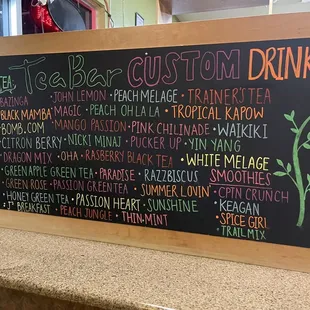 TEA TeaBar CUSTOM DRINK
BAZINGA · JOHN LEMON · PEACH MELAGE · TRAINER'S TEA
BLACK MAMBA · MAGIC · PEACH OH LA LA · TROPICAL KAPOW
BOMB.COM · MANGO PASSION · PINK CHILINADE · WAIKIKI
CITRON BERRY · NICKI MINAJ · PUCKER UP · YIN YANG
DRAGON MIX · OHA · RASBERRY BLACK TEA · WHITE MELAGE
GREEN APPLE GREEN TEA · PARADISE · RAZZBISCUS · SMOOTHIES
GREEN ROSE · PASSION GREEN TEA · SUMMER LOVIN' · CPTN CRUNCH
HONEY GREEN TEA · PASSION HEART · SUNSHINE · KEAGAN
BREAKFAST · PEACH JUNGLE · THIN MINT · SPICE GIRL
· TRAIL MIX